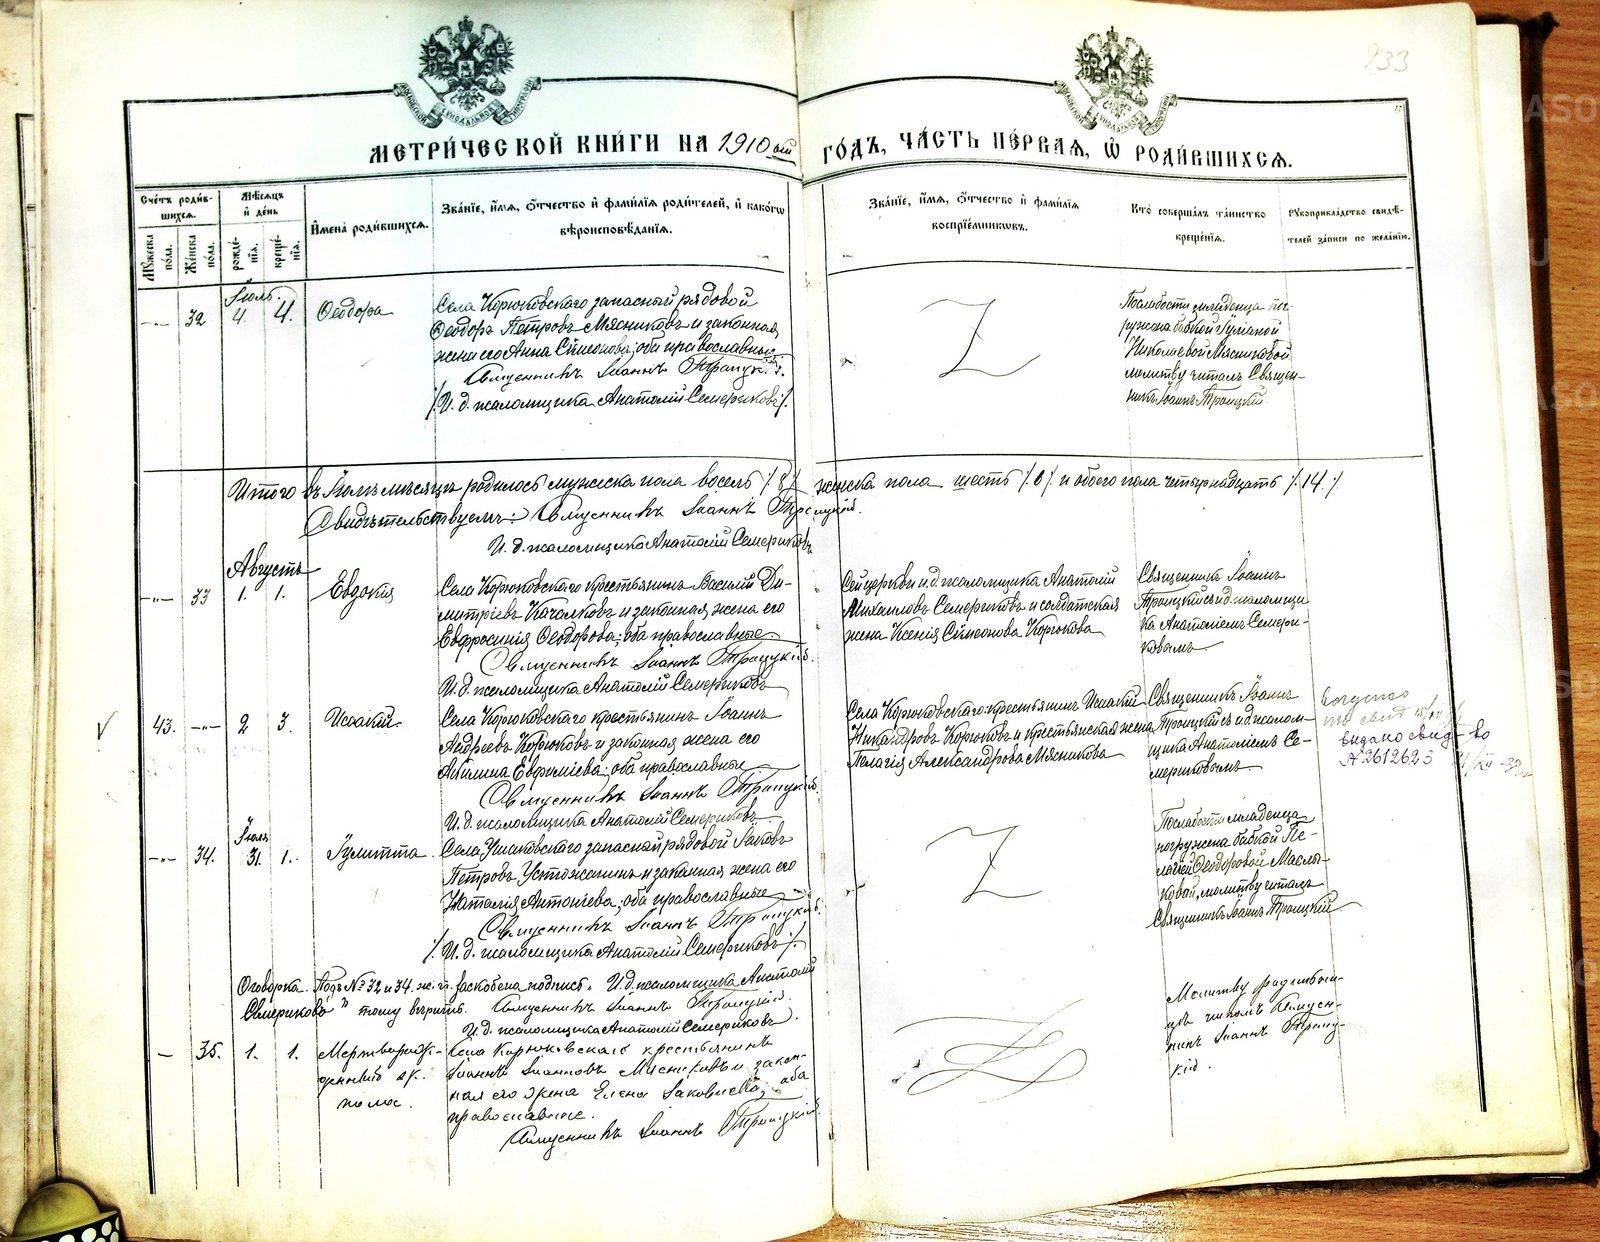 233
МЕТРИ́ЧЕСКОЙ КНИ́ГИ НА 1910 ый
ГО́ДЪ, ЧА́СТЬ ПЕ́РВАѦ, Ѡ҆ РОДИ́ВШИХСѦ.
Сче́тъ роди́в-
шихсѧ.
Мꙋ́жеска по́ла.
Же́нска по́ла.
Мѣ́сѧцъ
и҆ де́нь
рожде́-
нїѧ.
креще́-
нїѧ.
И҆мена̀ роди́вшихсѧ.
Зва́нїе, и҆́мѧ, ѻ҆́тчество и҆ фами́лїѧ роди́телей, и҆ како́гѡ
вѣроисповѣ́данїѧ.
Зва́нїе, и҆́мѧ, ѻ҆́тчество и҆ фами́лїѧ
воспрїе́мникѡвъ.
Кто̀ соверша́лъ та́инство
креще́нїѧ.
Рꙋкоприкла́дство свидѣ́-
телей за́писи по жела́нїю.
Іюль.
32
4.
4.
Ѳеодора
Села Корюковскаго запасный рядовой
Ѳеодоръ Петровъ Мясниковъ и законная
жена его Анна Сѵмеонова; оба православные
Священникъ Іоаннъ Троицкій.
/. И. д. псаломщика Анатолій Семериковъ /.
По слабости младенца по-
гружена бабкой Іуліаной
Николаевой Мясниковой
молитву читалъ Священ-
никъ Іоаннъ Троицкій
Итого въ Іюлѣ мѣсяцѣ родилось мужеска пола восемь /8/ женска пола шесть /.6/. и обоего пола четырнадцать /.14./.
Свидѣтельствуемъ: Священникъ Іоаннъ Троицкій.
И. д. псаломщика Анатолій Семериковъ
Августъ
33
1.
1.
Евдокія
Села Корюковскаго крестьянинъ Василій Ди-
митріевъ Качалковъ и законная жена его
Евфросинія Ѳеодорова; оба православные
Священникъ Іоаннъ Троицкій.
И. д. псаломщика Анатолій Семериковъ
Сей церкви и. д. псаломщика Анатолій
Михаиловъ Семериковъ и солдатская
жена Ксенія Сѵмеонова Корюкова
Священникъ Іоаннъ
Троицкій съ и. д. псаломщи
ка Анатоліемъ Семери-
ковымъ
43.
2
3.
Исаакій
Села Корюковскаго крестьянинъ Іоаннъ
Андреевъ Корюковъ и законная жена его
Акилина Евфиміева; оба православные
Священникъ Іоаннъ Троицкій.
И. д. псаломщика Анатолій Семериковъ
Села Корюковскаго крестьянинъ Исаакій
Никандровъ Корюковъ и крестьянская жена
Пелагія Александрова Мясникова
Священникъ Іоаннъ
Троицкій съ и. д. псалом-
щика Анатоліемъ Се-
мериковымъ
выдано свид-во
№ 2612623
Іюля
34.
31.
1.
Іулитта
Села Ушаковскаго запасный рядовой Іаковъ
Петровъ Устюжанинъ и законная жена его
Наталія Антоніева; оба православные
Священникъ Іоаннъ Троицкій.
/. И. д. псаломщика Анатолій Семериковъ /.
По слабости младенца
погружена бабкой Пе-
лагіей Ѳеодоровой Маслы-
ковой, молитву читалъ
Священникъ Іоаннъ Троицкій
Оговорка. Подъ № 32 и 34. ж. п. заскоблена подпись „И. д. псаломщика Анатолій
Семериковъ" тому вѣрить. Священникъ Іоаннъ Троицкій.
И. д. псаломщика Анатолій Семериковъ.
35.
1.
1.
Мертворож-
денный ж.
пола.
Села Корюковскаго крестьянинъ
Іоаннъ Іоанновъ Мясниковъ и закон-
ная его жена Елена Іаковлева; оба
православные.
Священникъ Іоаннъ Троицкій
Молитву родильни-
цѣ читалъ Священ-
никъ Іоаннъ Троиц-
кій.